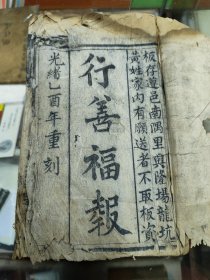 板存遵邑南隅里興隆場龍坑
黃姓家內有願送者不取板資
行善福報
光緒乙酉年重刻